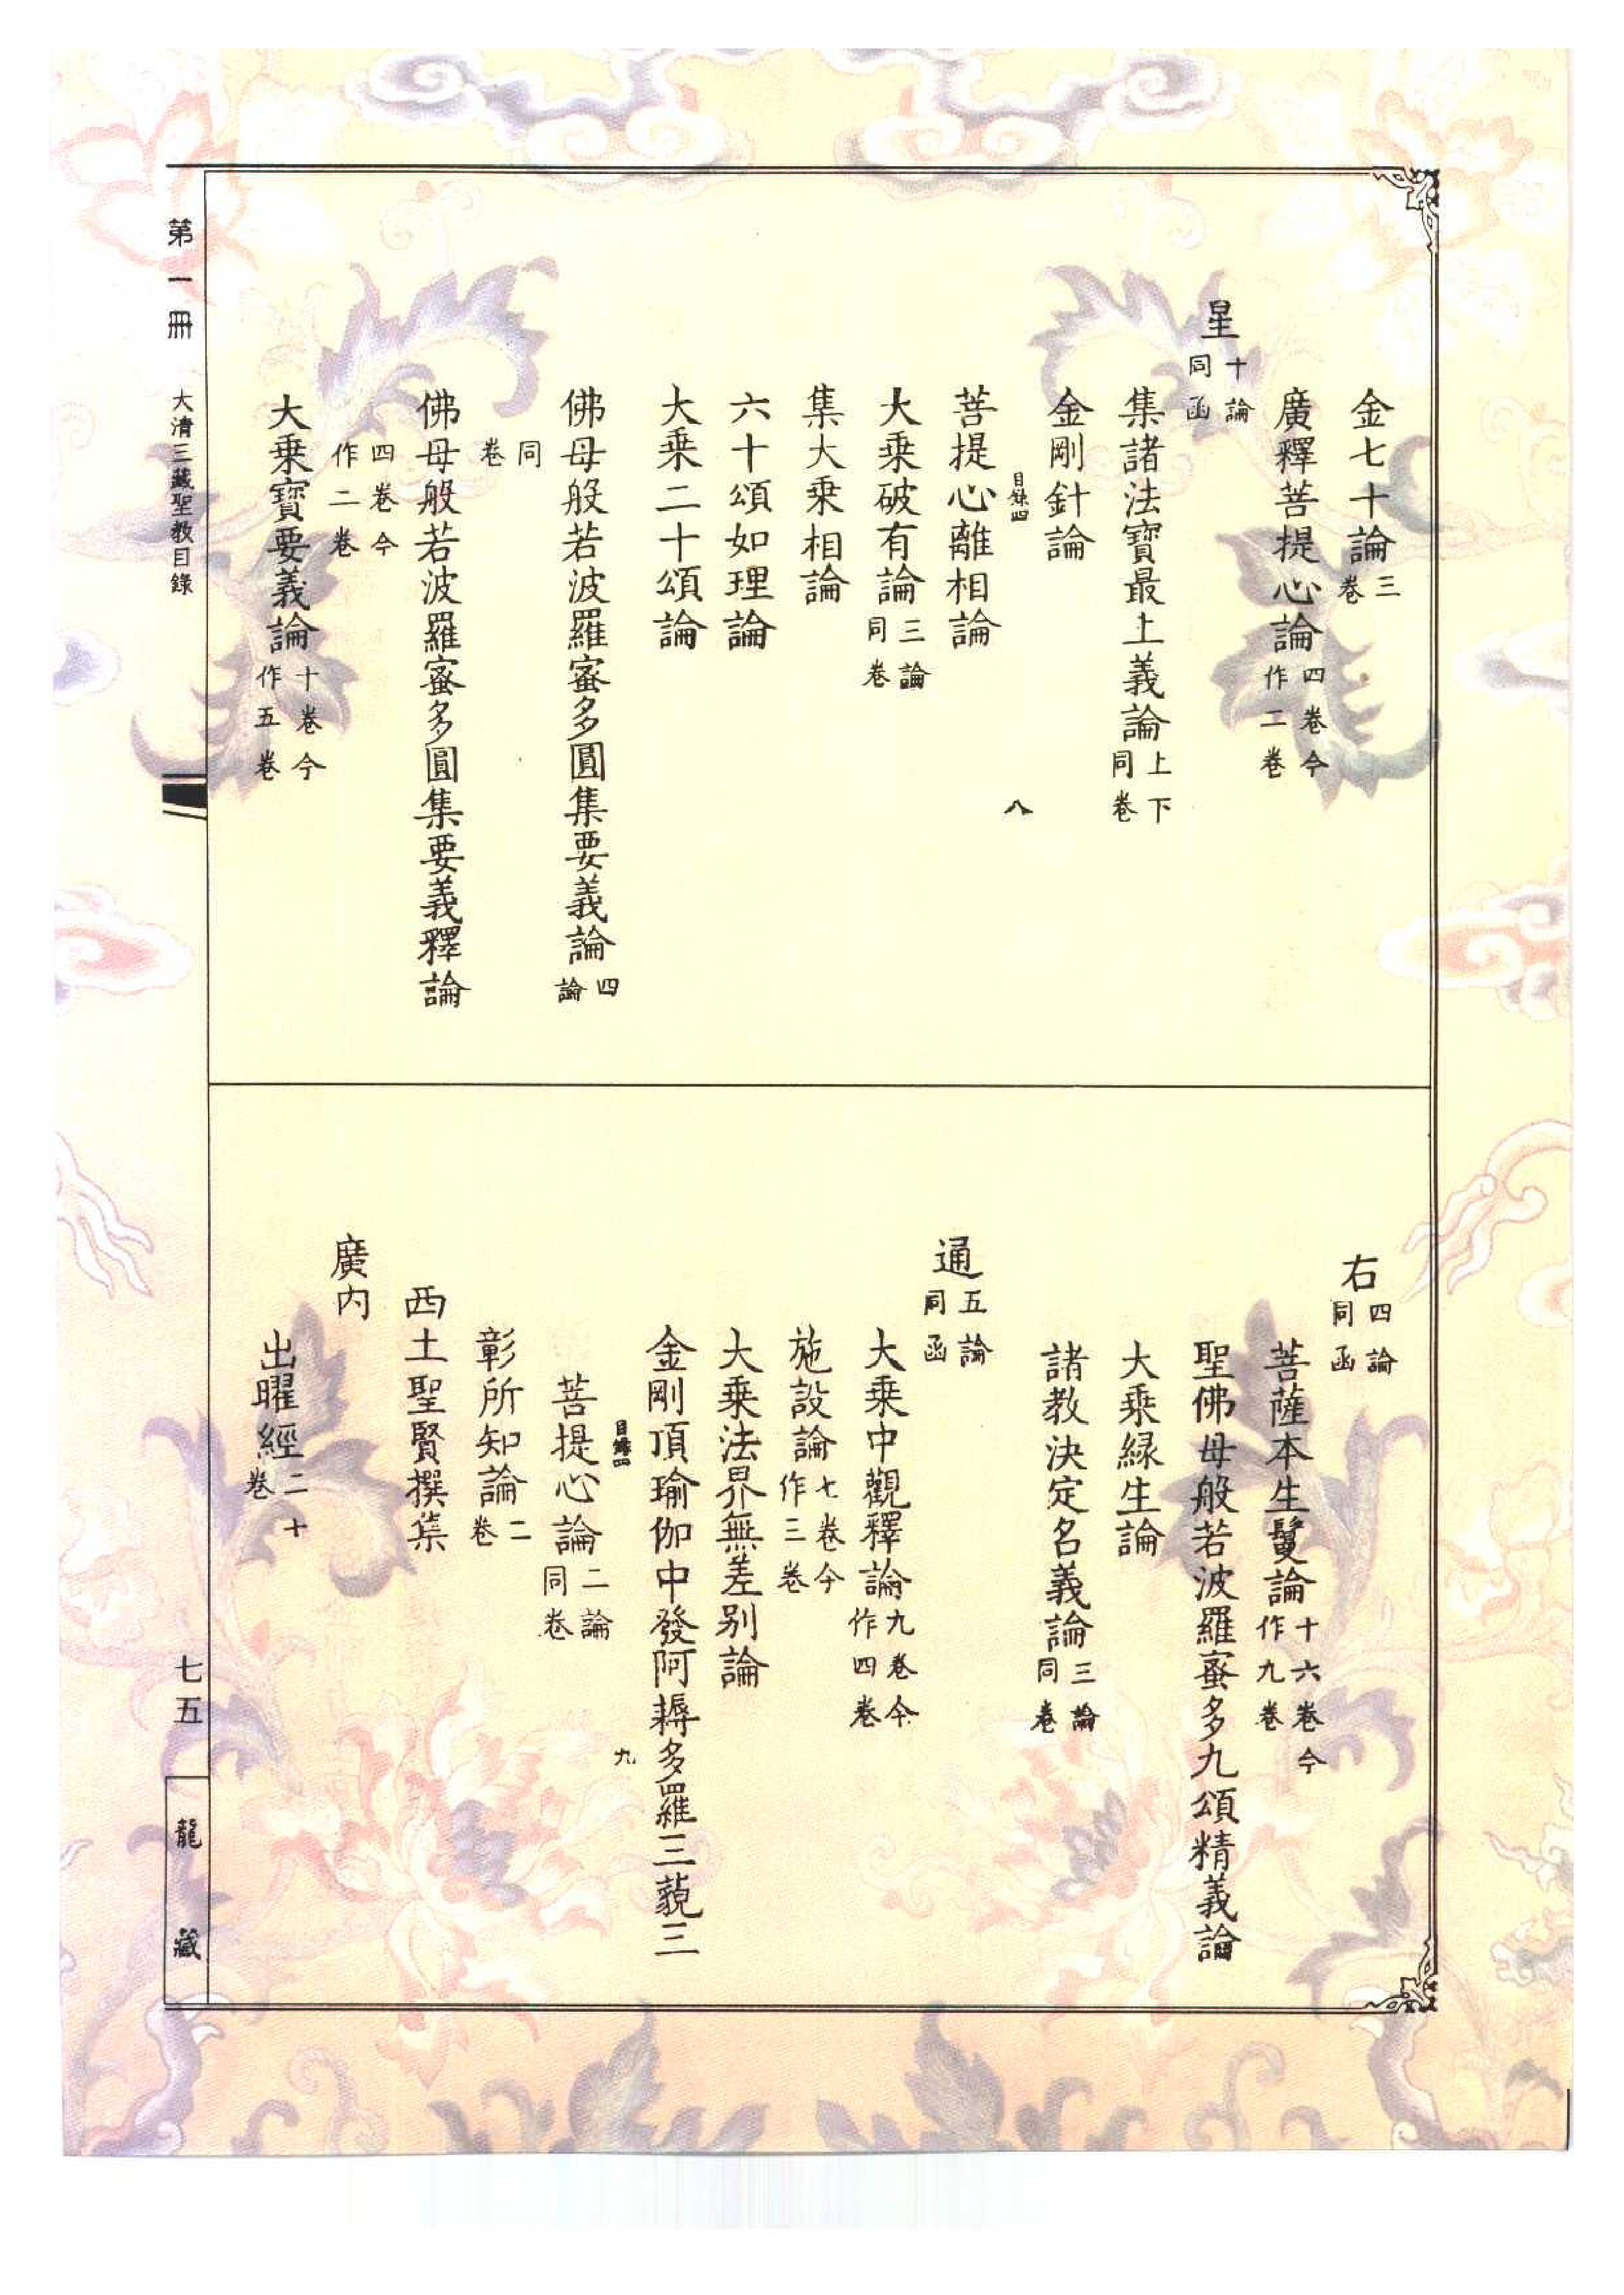 金七十論三卷
廣釋菩提心論四卷今作二卷
星十論同函
集諸法寶最上義論上下同卷
金剛針論
目錄四 八
菩提心離相論
大乘破有論三論同卷
集大乘相論
六十頌如理論
大乘二十頌論
佛母般若波羅蜜多圓集要義論四論
同卷
佛母般若波羅蜜多圓集要義釋論
四卷今作二卷
大乘寶要義論十卷今作五卷
右四論同函
菩薩本生鬘論十六卷今作九卷
聖佛母般若波羅蜜多九頌精義論
大乘緣生論
諸教決定名義論三論同卷
通五論同函
大乘中觀釋論九卷今作四卷
施設論七卷今作三卷
大乘法界無差别論
金剛頂瑜伽中發阿耨多羅三藐三
目錄四 九
菩提心論二論同卷
彰所知論二卷
西土聖賢撰集
廣內
出曜經二十卷
第一冊 大清三藏聖教目錄
七五
龍藏